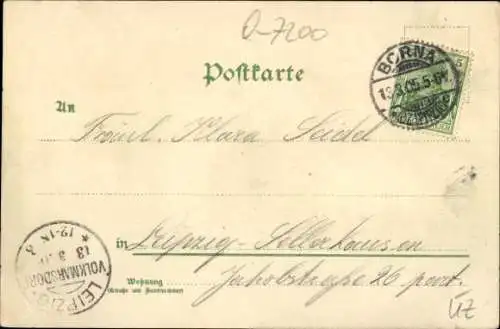 O-7200
BORNA
13.3.05.5-6N.
5
Postkarte
An
Fräul. Klara Seidel
in Leipzig-Sellerhausen
Wohnung
(Straße und Hausnummer)
Jakobstraße 26 part.
LEIPZIG-
VOLKMARSDORF
* 12-1N.
13 3